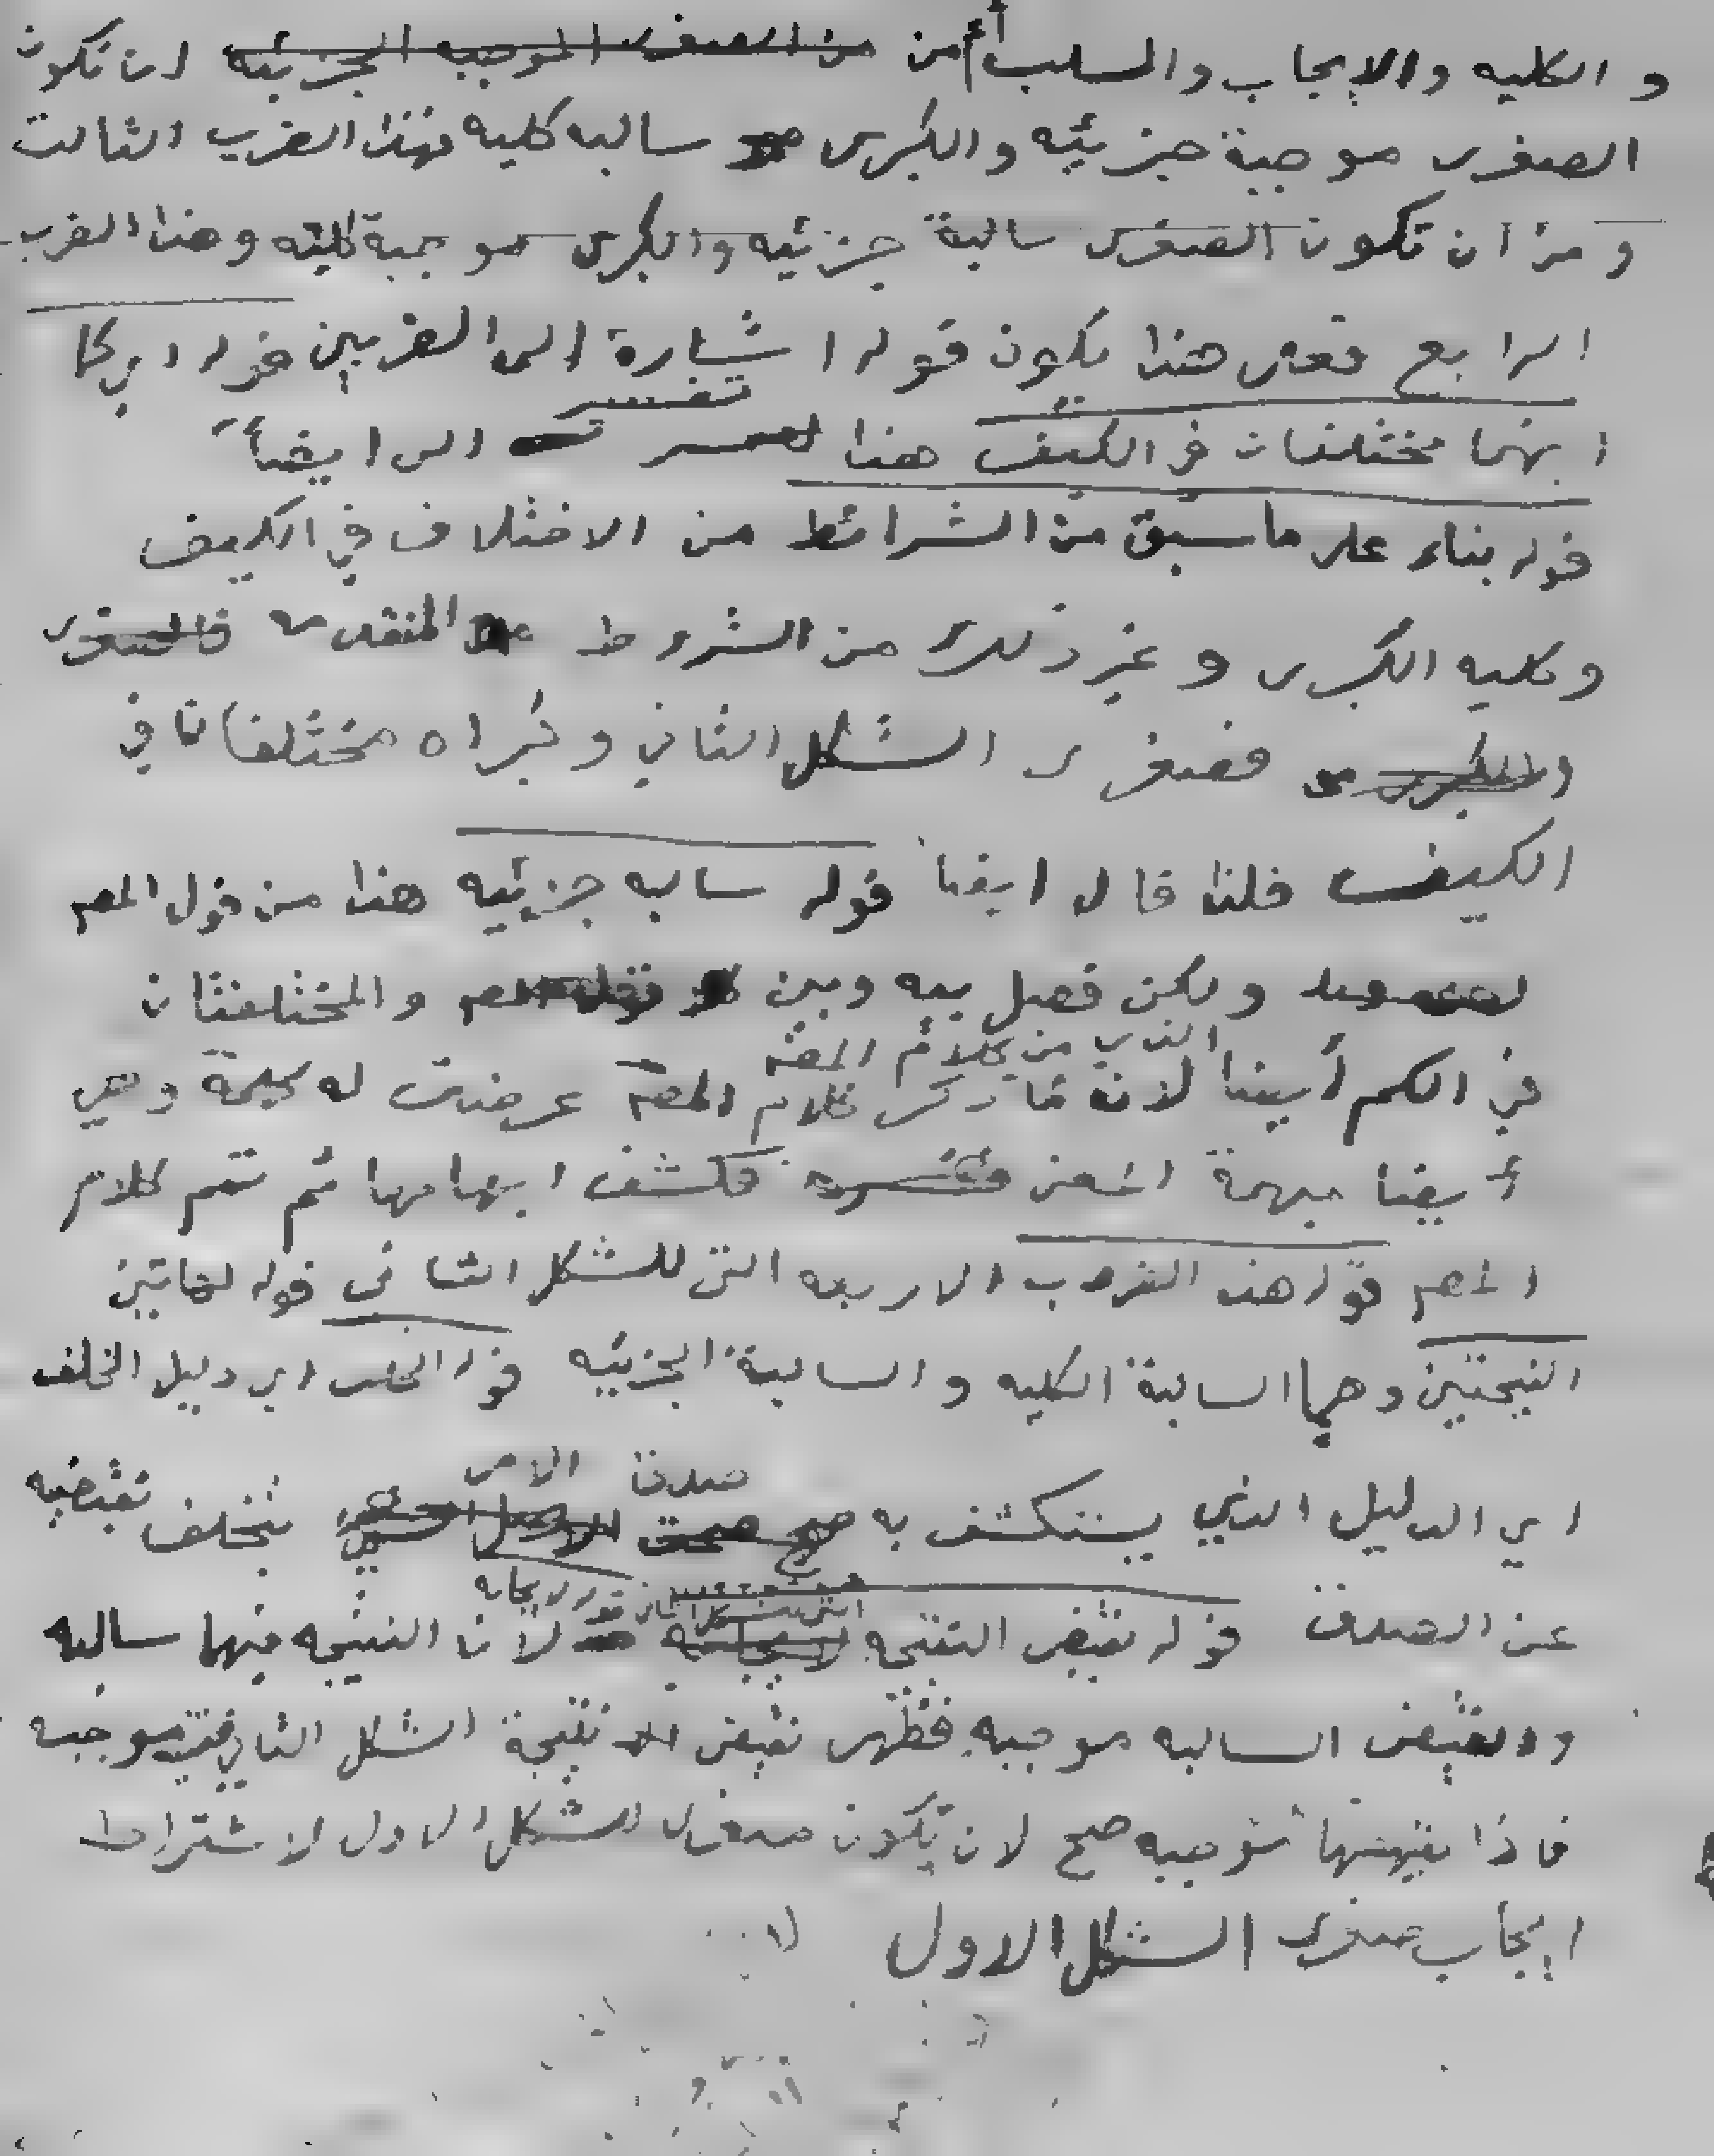 و الكليه والايجاب والسلب أمن من الصغرى الموجبه الجزئيه ان تكون
الصغرى موجبة جزئيه والكبرى سالبه كليه فهذا الضرب الثالث
و من ان تكون الصغرى سالبة جزئيه والكبرى موجبة كليه وهذا الضرب
الرابع فعلى هذا يكون قوله اشارة الى الضربين قوله اي كما
انهما مختلفان في الكيف هذا تفسير الى ايضاً
قوله بناء على ما سبق من الشرائط من الاختلاف في الكيف
وكليه الكبرى و غير ذلك من الشروط المتقدمه فالصغرى
والكبرى فصغرى الشكل الثاني وكبراه مختلفاتا في
الكيف فلذا قال ايضا قوله سالبه جزئيه هذا من قول المصم
ولكن فصل بيه وبين قول المصم و المختلفتان
في الكم أيضا لان ما ذكر كلام المصم عرضت له كلمة وهي
الذي من كلام المصم
أيضا مبهمة المعنى فكشف ابهامها ثم تمم كلام
المصم قوله هذه الضروب الاربعه التي للشكل الثاني قوله لهاتين
النتيجتين وهما السالبة الكليه و السالبة الجزئيه قوله الخلف اي دليل الخلف
اي الدليل الذي يستكشف به صدق الامر بتخلف نقيضه
عن الصدق قوله نقيض النتيجه قوله لايجابه لان النتيجه فيهما سالبه
ونقيض السالبه موجبه فظهر نقيض نتيجة الشكل الثاني موجبه
فاذا نقيضها موجبه صح لان يكون صغرى الشكل الاول لاشتراط
ايجاب صغرى الشكل الاول